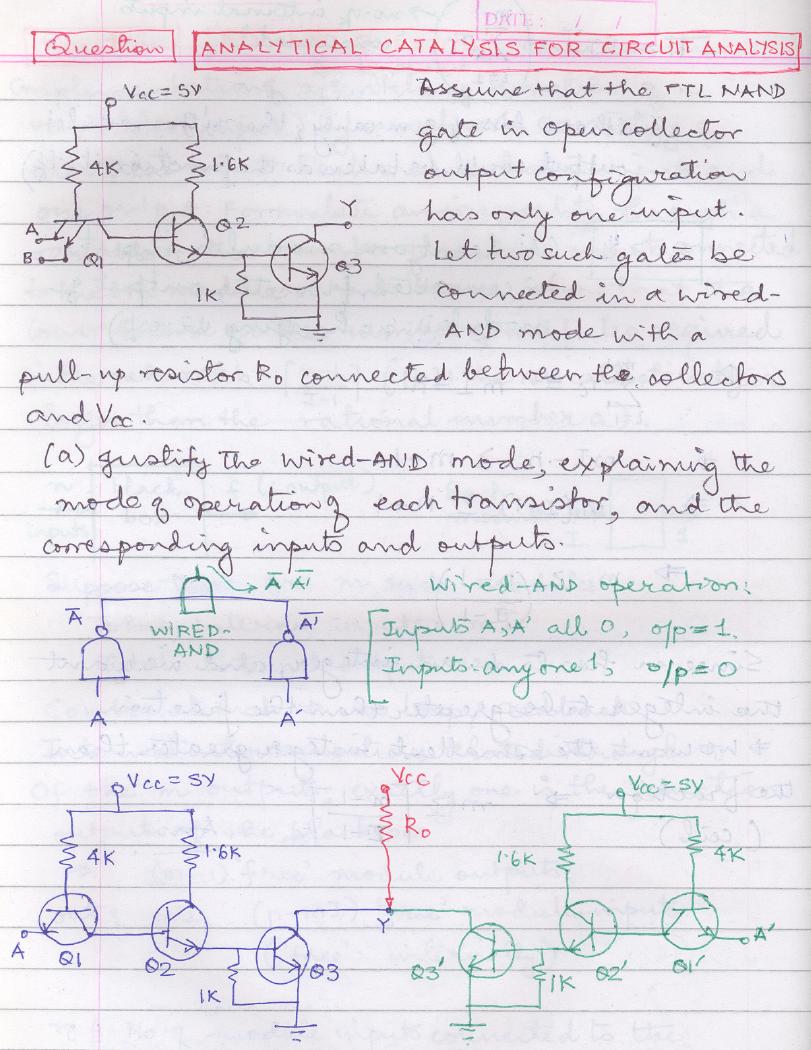 DATE: / /
Question ANALYTICAL CATALYSIS FOR CIRCUIT ANALYSIS
Vcc = 5V
4K
1.6K
A
B
Q1
Q2
1K
Y
Q3
Assume that the TTL NAND
gate in open collector
output configuration
has only one input.
Let two such gates be
connected in a wired-
AND mode with a
pull-up resistor Ro connected between the collectors
and Vcc.
(a) Justify the wired-AND mode, explaining the
mode of operation of each transistor, and the
corresponding inputs and outputs.
A̅ A̅'
A̅
WIRED-
AND
A̅'
A
A'
Wired-AND operation:
Inputs A, A' all 0, o/p = 1.
Inputs any one 1, o/p = 0
Vcc = 5V
4K
1.6K
A
Q1
Q2
1K
Q3
Vcc
Ro
Y
Vcc = 5V
1.6K
4K
Q3'
1K
Q2'
Q1'
A'